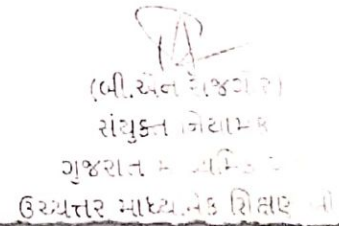 (બી.એન રાજગોર)
સંયુક્ત નિયામક
ગુજરાત
ઉચ્ચત્તર માધ્યમિક શિક્ષણ